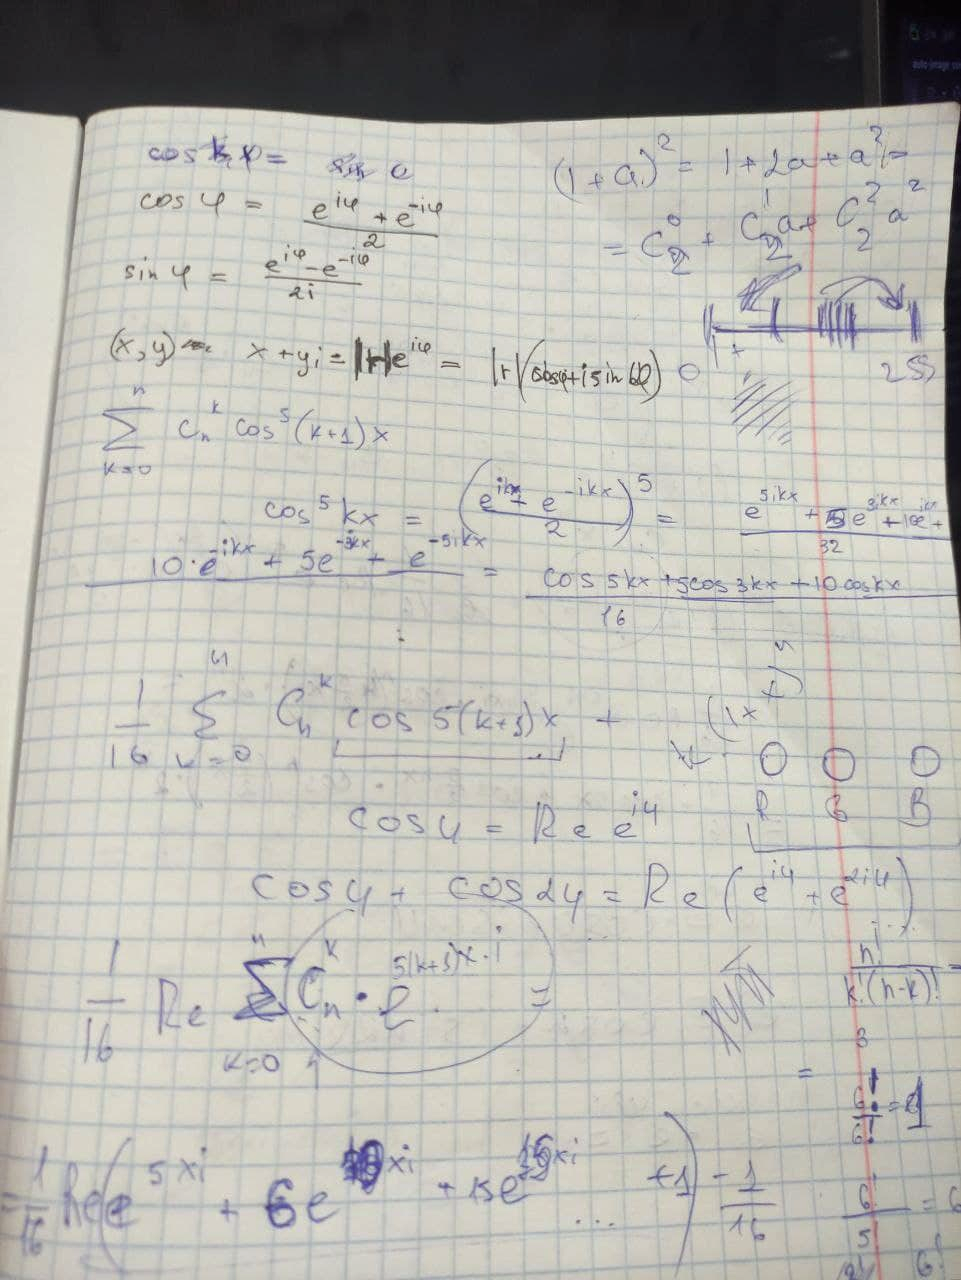 cos kφ =
cos φ = (e^{iφ} + e^{-iφ}) / 2
sin φ = (e^{iφ} - e^{-iφ}) / 2i
(1+a)^2 = 1+2a+a^2 =
= C_2^0 + C_2^1 a + C_2^2 a^2
0 255
(x,y) x+yi = |r|e^{iφ} = |r|(cosφ+i sin φ)
∑_{k=0}^{n} C_n^k cos^5(k+1)x
cos^5 kx = ((e^{ikx} + e^{-ikx}) / 2)^5 = (e^{5ikx} + 5e^{3ikx} + 10e^{ikx} +
10·e^{-ikx} + 5e^{-3ikx} + e^{-5ikx}) / 32 = (cos 5kx + 5cos 3kx + 10 cos kx) / 16
1/16 ∑_{k=0}^{n} C_n^k cos 5(k+1)x +
R G B
cos φ = Re e^{iφ}
cos φ + cos 2φ = Re (e^{iφ} + e^{2iφ})
1/16 Re ∑_{k=0}^{n} C_n^k · e^{5(k+1)x·i} =
n! / k!(n-k)! =
6!/6! = 1
= 1/16 Re(e^{5xi} + 6e^{10xi} + 15e^{15xi} ... + 1) - 1/16
6!/5 = 6
6!